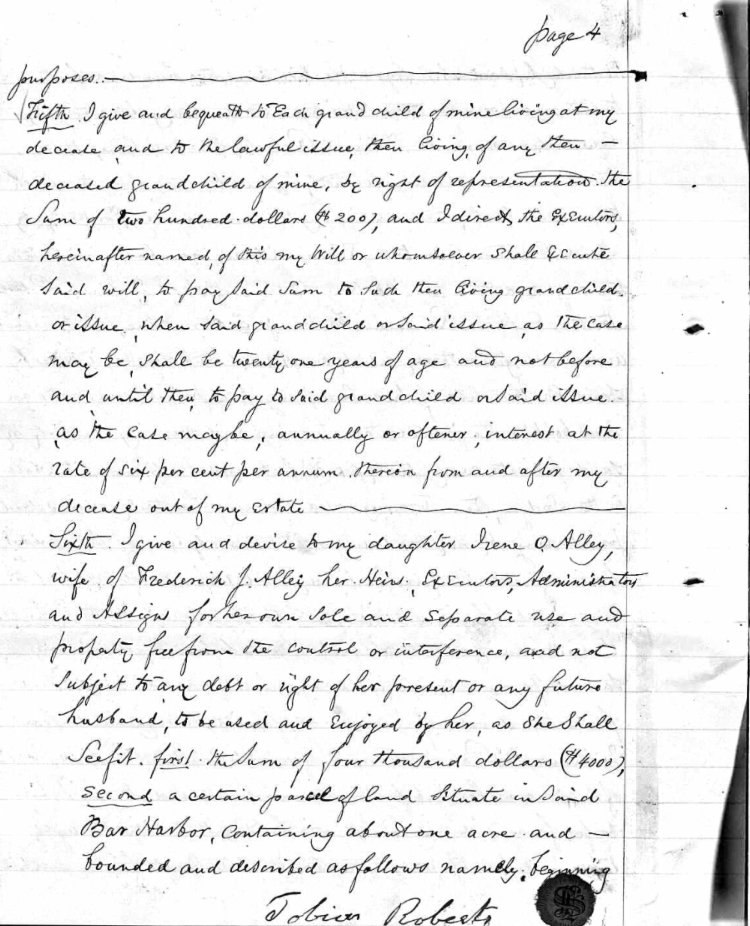 page 4
purposes.
Fifth. I give and bequeath to Each grand child of mine living at my
decease, and to the lawful issue, then living, of any then –
deceased grandchild of mine, by right of representation. the
Sum of two hundred dollars ($200), and I direct the Executors,
hereinafter named, of this my Will or whomsoever Shall Execute
Said will, to pay Said Sum to Such then living grandchild.
or issue, when Said grandchild or Said issue, as the case
may be, Shall be twenty one years of age and not before
and until then, to pay to Said grandchild or Said issue.
as the case may be, annually or oftener, interest at the
rate of Six per cent per annum. thereon from and after my
decease out of my Estate
Sixth. I give and devise to my daughter Irene O. Alley,
wife of Frederick J. Alley her Heirs, Executors, Administrators
and Assigns for her own Sole and Separate use and
property free from the control or interference, and not
Subject to any debt or right of her present or any future
husband, to be used and Enjoyed by her, as She Shall
See fit. first. the Sum of four thousand dollars ($4000),
Second a certain parcel of land Situate in Said
Bar Harbor, Containing about one acre and –
bounded and described as follows namely, beginning
Tobias Roberts